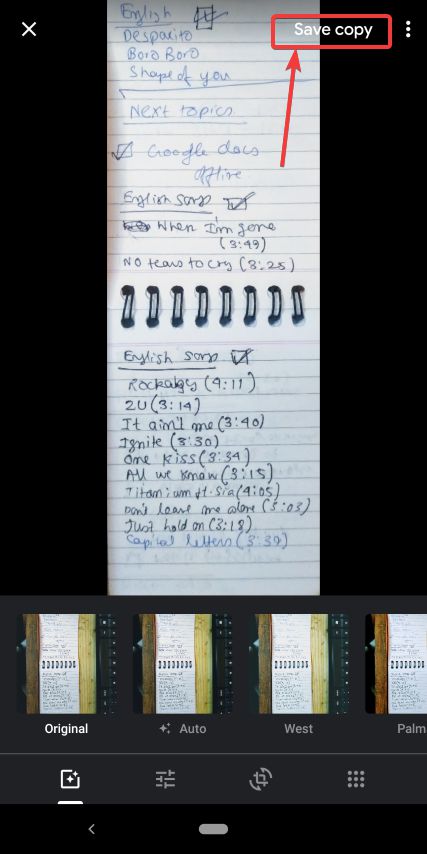 Save copy
English
Despacito
Boro Boro
Shape of you
Next topics
Google docs
offline
English songs
When I'm gone
(3:49)
NO tears to cry (3:25)
English songs
Rockabye (4:11)
2U (3:14)
It ain't me (3:40)
Ignite (3:30)
One kiss (3:34)
All we know (3:15)
Titanium ft. Sia (4:05)
Don't leave me alone (3:03)
Just hold on (3:18)
Capital letters (3:39)
Original
Auto
West
Palm